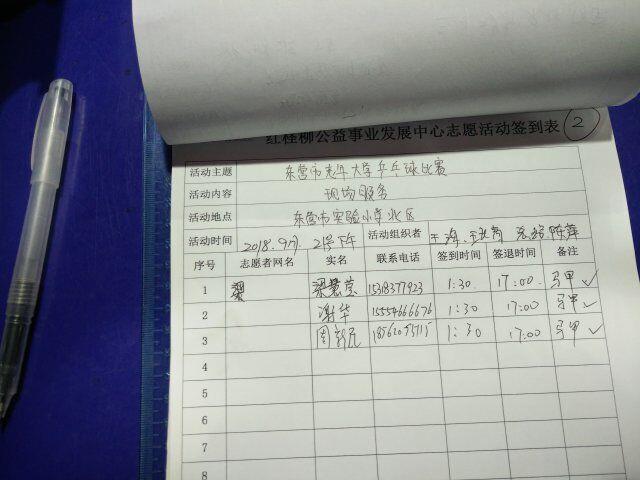 红柽柳公益事业发展中心志愿活动签到表 2
活动主题 东营市老年大学乒乓球比赛
活动内容 现场服务
活动地点 东营市实验小学北区
活动时间 2018.9月 21号下午 活动组织者
序号 志愿者网名 实名 联系电话 签到时间 签退时间 备注
1 梁 梁慧莹 15318377923 1:30 17:00 马甲 ✓
2 谢华 15554666676 1:30 17:00 马甲 ✓
3 周 1:30 17:00 马甲 ✓
4
5
6
7
8